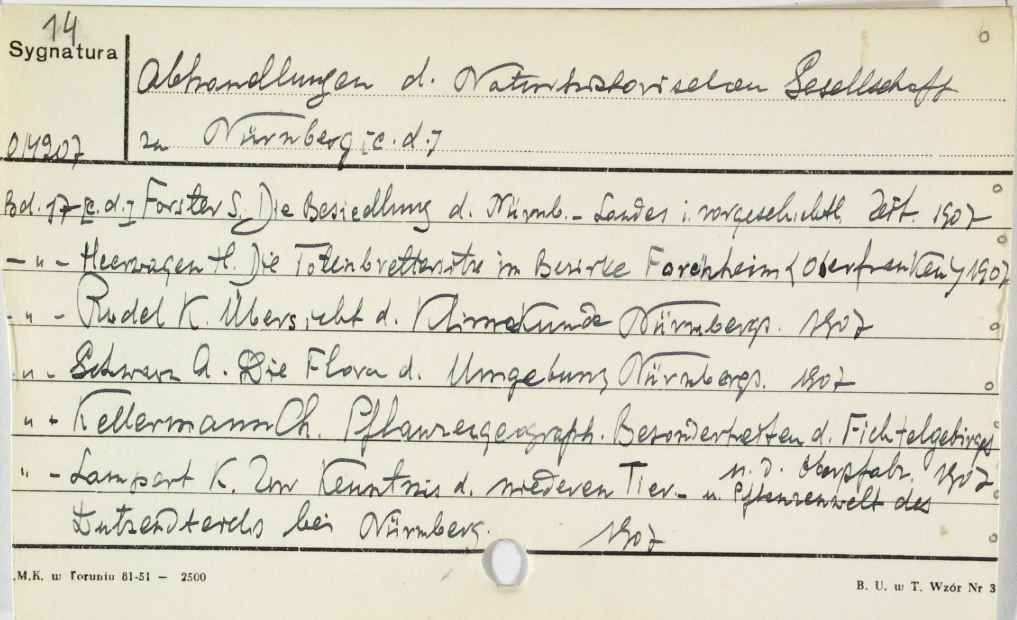 14
Sygnatura
Abhandlungen d. Naturhistorischen Gesellschaft
014207
zu Nürnberg [c.d.]
Bd. 17 [c.d.] Forster S. Die Besiedlung d. Nürnb.- Landes i. vorgeschichtl. Zeit. 1907
- " - Heerwagen H. Die Totenbrettersitte im Bezirke Forchheim (Oberfranken) 1907
- " - Rudel K. Übersicht d. Klimakunde Nürnbergs. 1907
- " - Schwarz A. Die Flora d. Umgebung Nürnbergs. 1907
" - Kellermann Ch. Pflanzengeograph. Besonderheiten d. Fichtelgebirges
u. d. Oberpfalz. 1907
" - Lampert K. Zur Kenntnis d. niederen Tier- u. Pflanzenwelt des
Dutzendteichs bei Nürnberg. 1907
M.K. w Toruniu 81-51 — 2500
B. U. w T. Wzór Nr 3